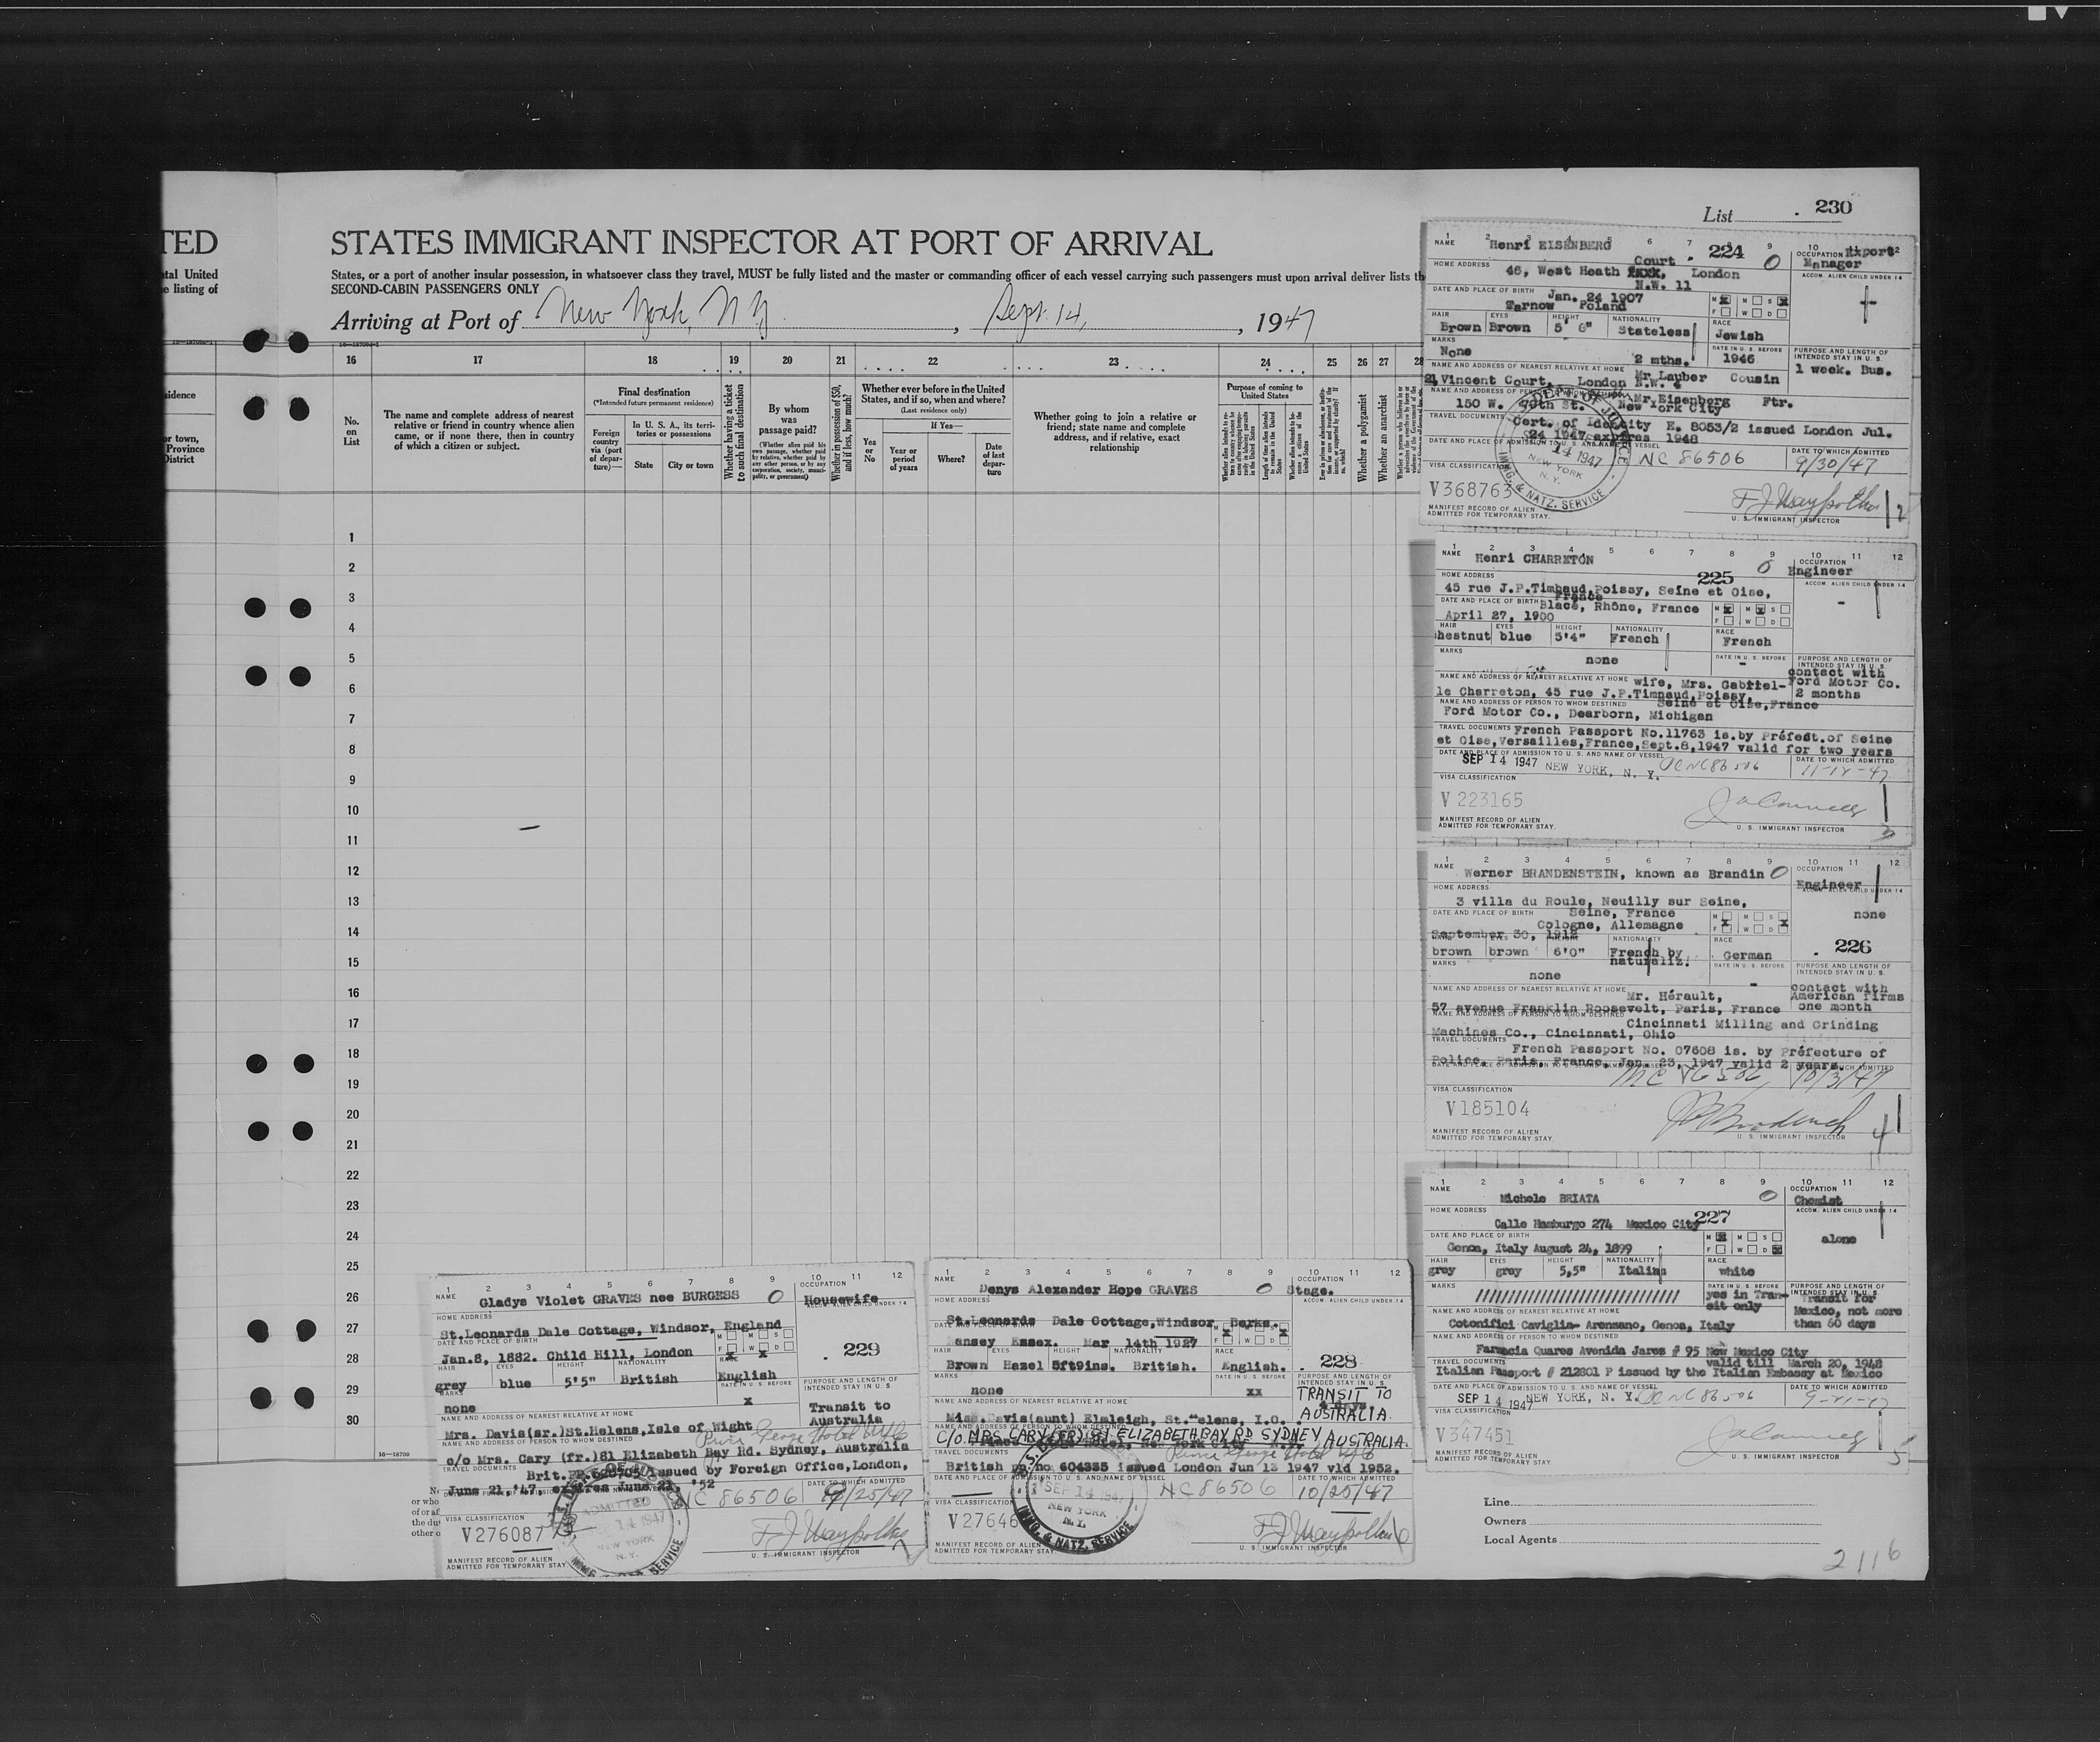 List 230
TED
STATES IMMIGRANT INSPECTOR AT PORT OF ARRIVAL
tal United
e listing of
States, or a port of another insular possession, in whatsoever class they travel, MUST be fully listed and the master or commanding officer of each vessel carrying such passengers must upon arrival deliver lists th
SECOND-CABIN PASSENGERS ONLY
Arriving at Port of New York, N Y , Sept. 14, , 1947
16 17 18 19 20 21 22 23 24 25 26 27 28
sidence
or town,
Province
District
No. on List
The name and complete address of nearest relative or friend in country whence alien came, or if none there, then in country of which a citizen or subject.
Final destination
(*Intended future permanent residence)
Foreign country via (port of departure)—
In U. S. A., its territories or possessions
State
City or town
Whether having a ticket to such final destination
By whom was passage paid?
(Whether alien paid his own passage, whether paid by relative, whether paid by any other person, or by any corporation, society, municipality, or government)
Whether in possession of $50, and if less, how much?
Whether ever before in the United States, and if so, when and where?
(Last residence only)
Yes or No
If Yes—
Year or period of years
Where?
Date of last departure
Whether going to join a relative or friend; state name and complete address, and if relative, exact relationship
Purpose of coming to United States
Whether a polygamist
Whether an anarchist
1
2
3
4
5
6
7
8
9
10
11
12
13
14
15
16
17
18
19
20
21
22
23
24
25
26
27
28
29
30
16—18709
1 2 3 4 5 6 7 8 9 10 12
NAME Henri EISENBERG 224 0
OCCUPATION Export Manager
HOME ADDRESS 46, West Heath Court London N.W. 11
ACCOM. ALIEN CHILD UNDER 14
DATE AND PLACE OF BIRTH Jan. 24 1907
Tarnow Poland
M F M W S D
HAIR EYES HEIGHT NATIONALITY RACE
Brown Brown 5' 6" Stateless Jewish
MARKS None
2 mths. DATE IN U. S. BEFORE 1946
PURPOSE AND LENGTH OF INTENDED STAY IN U. S.
1 week. Bus.
NAME AND ADDRESS OF NEAREST RELATIVE AT HOME Mr Lauber Cousin
21 Vincent Court, London N.W. 4
Mr. Eisenberg Ftr.
150 W. 70th St. New York City
TRAVEL DOCUMENTS
Cert. of Identity E. 8053/2 issued London Jul.
24 1947 expires 1948
DATE AND PLACE OF ADMISSION TO U. S. AND NAME OF VESSEL
NC 86506
DATE TO WHICH ADMITTED
9/30/47
VISA CLASSIFICATION
V368763
DEPT. OF JUSTICE
14 1947
NEW YORK
N. Y.
IMMG. & NATZ. SERVICE
MANIFEST RECORD OF ALIEN ADMITTED FOR TEMPORARY STAY.
U. S. IMMIGRANT INSPECTOR
2
1 2 3 4 5 6 7 8 9 10 11 12
NAME Henri CHARRETON 225 0
OCCUPATION Engineer
HOME ADDRESS
45 rue J.P.Timbaud,Poissy, Seine et Oise,
France
ACCOM. ALIEN CHILD UNDER 14
-
DATE AND PLACE OF BIRTH Blacé, Rhône, France
April 27, 1900
M F M W S D
HAIR EYES HEIGHT NATIONALITY RACE
chestnut blue 5'4" French French
MARKS none
DATE IN U. S. BEFORE -
PURPOSE AND LENGTH OF INTENDED STAY IN U. S.
contact with
Ford Motor Co.
2 months
NAME AND ADDRESS OF NEAREST RELATIVE AT HOME wife, Mrs. Gabriel-
le Charreton, 45 rue J.P.Timnaud,Poissy,
Seine et Oise,France
NAME AND ADDRESS OF PERSON TO WHOM DESTINED
Ford Motor Co., Dearborn, Michigan
TRAVEL DOCUMENTS French Passport No.11763 is.by Préfect.of Seine
et Oise,Versailles,France,Sept.8,1947 valid for two years
DATE AND PLACE OF ADMISSION TO U. S. AND NAME OF VESSEL
SEP 14 1947 NEW YORK, N. Y. NC 86506
DATE TO WHICH ADMITTED
VISA CLASSIFICATION
V 223165
MANIFEST RECORD OF ALIEN ADMITTED FOR TEMPORARY STAY.
U. S. IMMIGRANT INSPECTOR
3
1 2 3 4 5 6 7 8 9 11 12
NAME Werner BRANDENSTEIN, known as Brandin 0
OCCUPATION Engineer
HOME ADDRESS
3 villa du Roule, Neuilly sur Seine,
Seine, France
ACCOM. ALIEN CHILD UNDER 14
none
DATE AND PLACE OF BIRTH
Cologne, Allemagne
September 30, 1912
M F M W S D
226
HAIR EYES HEIGHT NATIONALITY RACE
brown brown 6'0" French by naturaliz. German
MARKS none
DATE IN U. S. BEFORE -
PURPOSE AND LENGTH OF INTENDED STAY IN U. S.
contact with
American firms
one month
NAME AND ADDRESS OF NEAREST RELATIVE AT HOME Mr. Hérault,
57 avenue Franklin Roosevelt, Paris, France
NAME AND ADDRESS OF PERSON TO WHOM DESTINED
Cincinnati Milling and Grinding
Machines Co., Cincinnati, Ohio
TRAVEL DOCUMENTS
French Passport No. 07608 is. by Préfecture of
Police, Paris, France, Jan. 23, 1947 valid 2 years.
NC 86506 10/3/47
VISA CLASSIFICATION
V185104
MANIFEST RECORD OF ALIEN ADMITTED FOR TEMPORARY STAY.
U. S. IMMIGRANT INSPECTOR
4
1 2 3 4 5 6 7 8 9 10 11 12
NAME Michele BRIATA 0
OCCUPATION Chemist
HOME ADDRESS
Calle Hamburgo 274 Mexico City 227
ACCOM. ALIEN CHILD UNDER 14
alone
DATE AND PLACE OF BIRTH
Genoa, Italy August 24, 1899
M F M W S D
HAIR EYES HEIGHT NATIONALITY RACE
grey grey 5,5" Italian white
MARKS
DATE IN U. S. BEFORE
yes in Tran-
sit only
PURPOSE AND LENGTH OF INTENDED STAY IN U. S.
Transit for
Mexico, not more
than 60 days
NAME AND ADDRESS OF NEAREST RELATIVE AT HOME
Cotonifici Caviglia- Arenzano, Genoa, Italy
NAME AND ADDRESS OF PERSON TO WHOM DESTINED
Farmacia Quares Avenida Jares # 95 New Mexico City
TRAVEL DOCUMENTS valid till March 20, 1948
Italian Passport # 212801 P issued by the Italian Embassy at Mexico
DATE AND PLACE OF ADMISSION TO U. S. AND NAME OF VESSEL
SEP 14 1947 NEW YORK, N. Y. NC 86506
DATE TO WHICH ADMITTED
VISA CLASSIFICATION
V347451
MANIFEST RECORD OF ALIEN ADMITTED FOR TEMPORARY STAY.
U. S. IMMIGRANT INSPECTOR
5
1 2 3 4 5 6 7 8 9 10 11 12
NAME Gladys Violet GRAVES nee BURGESS 0
OCCUPATION Housewife
ACCOM. ALIEN CHILD UNDER 14
HOME ADDRESS
St.Leonards Dale Cottage, Windsor, England
DATE AND PLACE OF BIRTH
Jan.8, 1882. Child Hill, London
M F M W S D
229
HAIR EYES HEIGHT NATIONALITY RACE
grey blue 5'5" British English
MARKS none
DATE IN U. S. BEFORE x
PURPOSE AND LENGTH OF INTENDED STAY IN U. S.
Transit to
Australia
NAME AND ADDRESS OF NEAREST RELATIVE AT HOME
Mrs. Davis(sr.)St.Helens,Isle of Wight
NAME AND ADDRESS OF PERSON TO WHOM DESTINED Prince George Hotel NYC
c/o Mrs. Cary (fr.)81 Elizabeth Bay Rd. Sydney, Australia
TRAVEL DOCUMENTS
issued by Foreign Office,London,
June 21,'47, expires June 21, '52
NC 86506
DATE TO WHICH ADMITTED
VISA CLASSIFICATION
V276087
ADMITTED
14 1947
NEW YORK
N. Y.
MANIFEST RECORD OF ALIEN ADMITTED FOR TEMPORARY STAY
U. S. IMMIGRANT INSPECTOR
1 2 3 4 5 6 7 8 9 10 11 12
NAME Denys Alexander Hope GRAVES 0
OCCUPATION Stage.
ACCOM. ALIEN CHILD UNDER 14
HOME ADDRESS
St.Leonards Dale Cottage,Windsor, Berks.
DATE AND PLACE OF BIRTH
Ransey Essex. Mar 14th 1927
F W D
HAIR EYES HEIGHT NATIONALITY RACE
Brown Hazel 5ft9ins. British. English.
228
MARKS none
DATE IN U. S. BEFORE xx
PURPOSE AND LENGTH OF INTENDED STAY IN U. S.
TRANSIT TO
AUSTRALIA.
NAME AND ADDRESS OF NEAREST RELATIVE AT HOME
Miss.Davis(aunt) Elmleigh, St.Helens, I.O.
C/O. MRS CARY (FR) 81 ELIZABETH BAY RD SYDNEY AUSTRALIA.
TRAVEL DOCUMENTS Prince George Hotel NYC
British pp.no 604335 issued London Jun 13 1947 vld 1952.
DATE AND PLACE OF ADMISSION TO U. S. AND NAME OF VESSEL
NC 86506
DATE TO WHICH ADMITTED
10/25/47
VISA CLASSIFICATION
V27646
SEP 14 1947
NEW YORK
N.Y.
IMMG. & NATZ. SERVICE
MANIFEST RECORD OF ALIEN ADMITTED FOR TEMPORARY STAY.
U. S. IMMIGRANT INSPECTOR
or who
of or af
the dut
other o
Line
Owners
Local Agents
2116